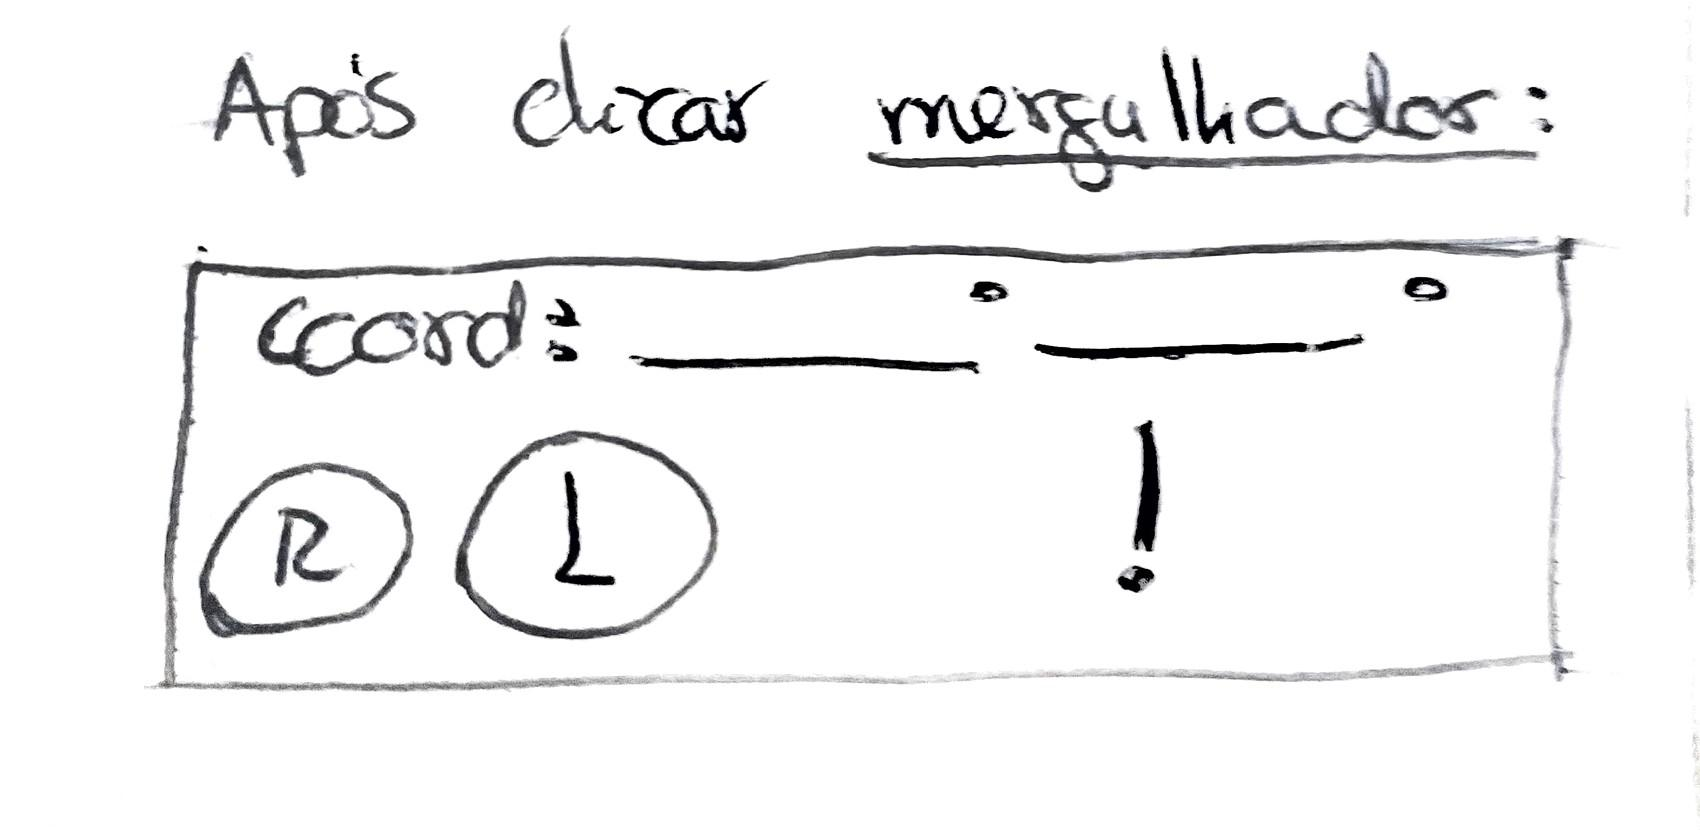 Após clicar mergulhador:
Coord: ______° ______°
R L !